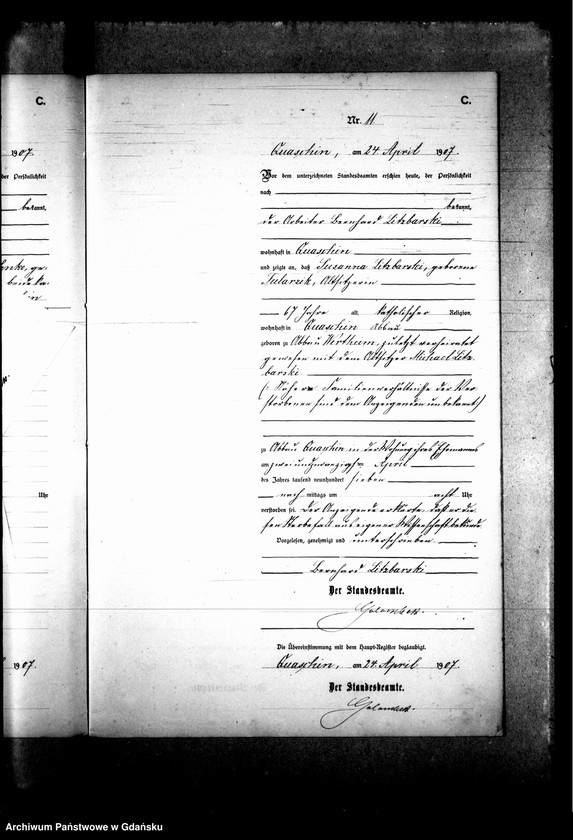 C.
1907.
der Persönlichkeit
bekannt,
Uhr
1907.
C.
Nr. 11
Quaschin, am 24 April 1907.
Vor dem unterzeichneten Standesbeamten erschien heute, der Persönlichkeit
nach
bekannt,
der Arbeiter Bernhard Litzbarski
wohnhaft in Quaschin
und zeigte an, daß Susanna Litzbarski, geborene
Altsitzerin
67 Jahre alt, katholischer Religion,
wohnhaft in Quaschin Abbau
geboren zu Abbau Wertheim, zuletzt verheiratet
gewesen mit dem Altsitzer Michael Litz
barski
(: Nähere Familienverhältnisse der Ver
storbenen sind dem Anzeigenden unbekannt)
zu Abbau Quaschin in der Wohnung ihres Ehemannes
am zweiundzwanzigsten April
des Jahres tausend neunhundert sieben
nach mittags um acht Uhr
verstorben sei. Der Anzeigende erklärte, daß er die
sen Sterbefall aus eigener Wissenschaft bekunde
Vorgelesen, genehmigt und unterschrieben
Bernhard Litzbarski
Der Standesbeamte.
Golombek.
Die Übereinstimmung mit dem Haupt-Register beglaubigt.
Quaschin, am 24. April 1907.
Der Standesbeamte.
Golombek.
Archiwum Państwowe w Gdańsku